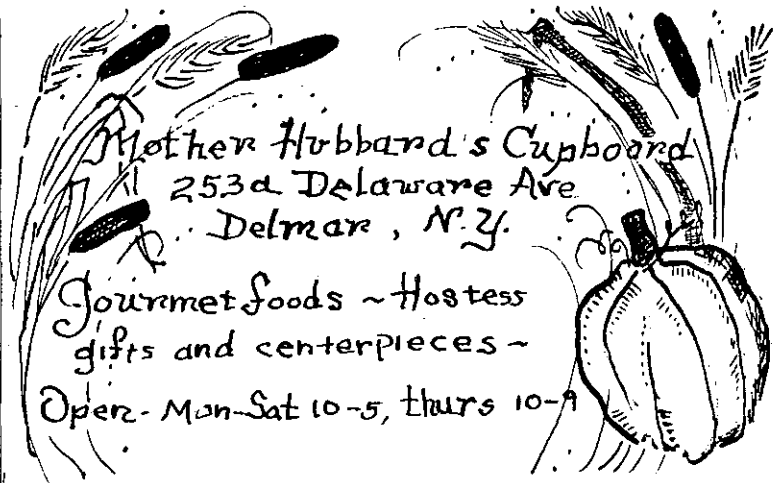 Mother Hubbard's Cupboard
253a Delaware Ave
Delmar, N.Y.
Gourmet foods ~ Hostess
gifts and centerpieces ~
Open - Mon-Sat 10-5, thurs 10-9